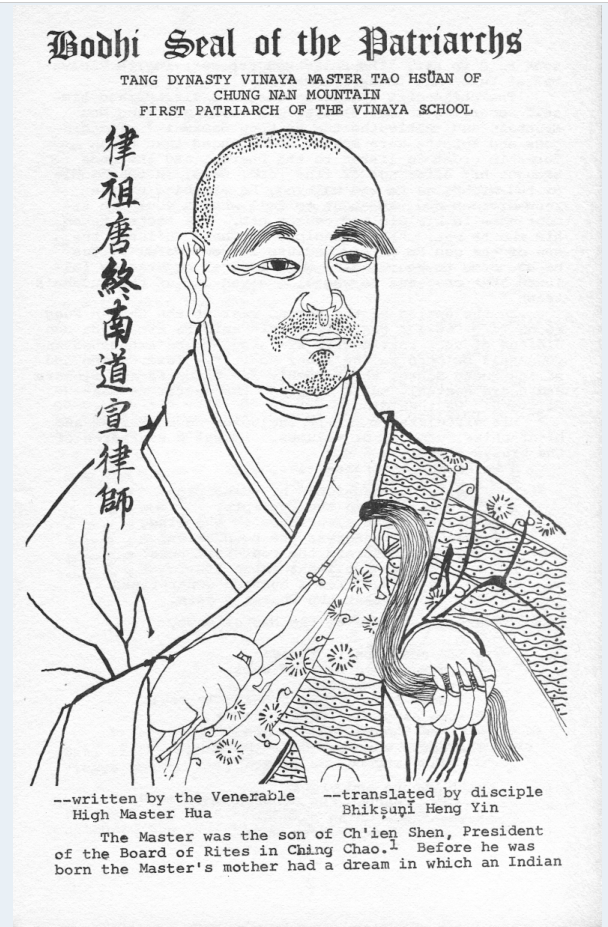 Bodhi Seal of the Patriarchs
TANG DYNASTY VINAYA MASTER TAO HSÜAN OF
CHUNG NAN MOUNTAIN
FIRST PATRIARCH OF THE VINAYA SCHOOL
律祖唐終南道宣律師
--written by the Venerable
High Master Hua
--translated by disciple
Bhikṣuṇī Heng Yin
The Master was the son of Ch'ien Shen, President
of the Board of Rites in Ching Chao.1 Before he was
born the Master's mother had a dream in which an Indian